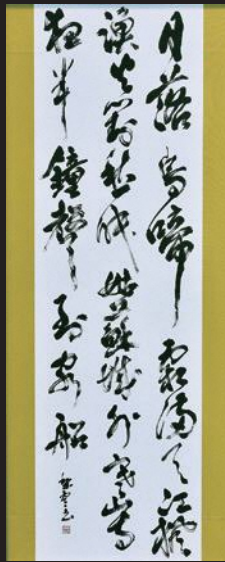 月落烏啼霜滿天江楓
漁火對愁眠姑蘇城外寒山寺
夜半鐘聲到客船